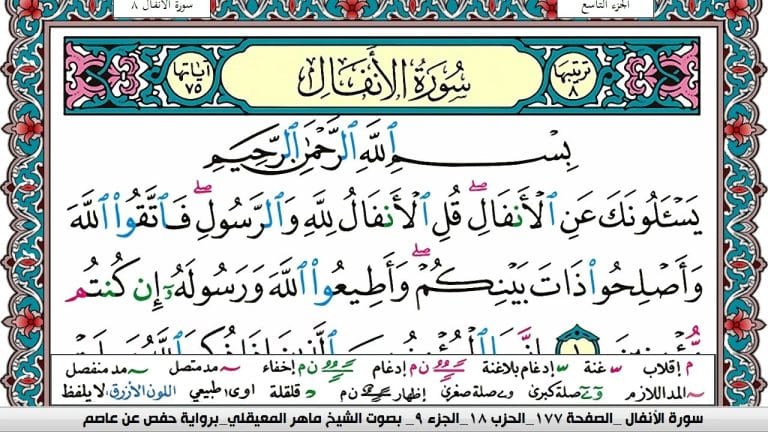 سورة الأنفال ٨
الجزء التاسع
ترتيبها ٨
سُورَةُ الأَنفَالِ
آياتها ٧٥
بِسْمِ ٱللَّهِ ٱلرَّحْمَٰنِ ٱلرَّحِيمِ
يَسْـَٔلُونَكَ عَنِ ٱلْأَنفَالِ ۖ قُلِ ٱلْأَنفَالُ لِلَّهِ وَٱلرَّسُولِ ۖ فَٱتَّقُوا۟ ٱللَّهَ
وَأَصْلِحُوا۟ ذَاتَ بَيْنِكُمْ ۖ وَأَطِيعُوا۟ ٱللَّهَ وَرَسُولَهُۥٓ إِن كُنتُم
م إقلاب س غنة س إدغام بلاغنة ن م إدغام ن م إخفاء ~ مد متصل ~ مد منفصل
~ المد اللازم صلة كبرى و صلة صغرى إظهار ن م قلقلة اوى ا طبيعي اللون الأزرق لا يلفظ
سورة الأنفال _الصفحة ١٧٧_الحزب ١٨_الجزء ٩_ بصوت الشيخ ماهر المعيقلي_برواية حفص عن عاصم